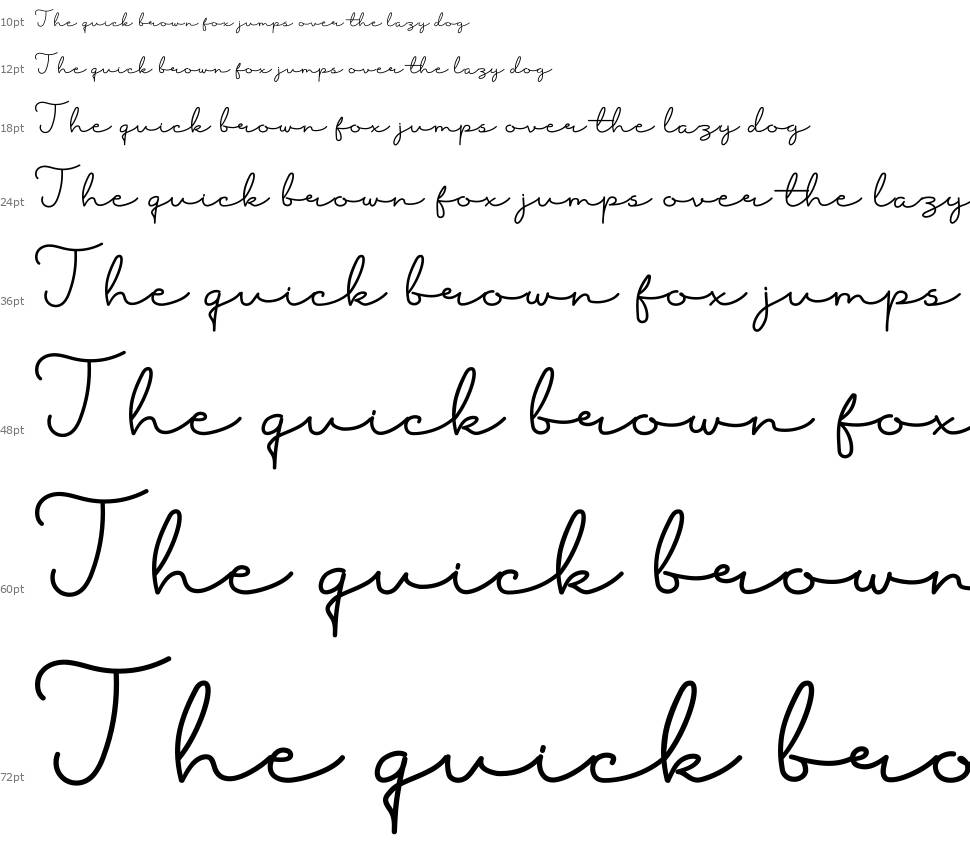 10pt The quick brown fox jumps over the lazy dog
12pt The quick brown fox jumps over the lazy dog
18pt The quick brown fox jumps over the lazy dog
24pt The quick brown fox jumps over the lazy
36pt The quick brown fox jumps
48pt The quick brown fox
60pt The quick brown
72pt The quick bro